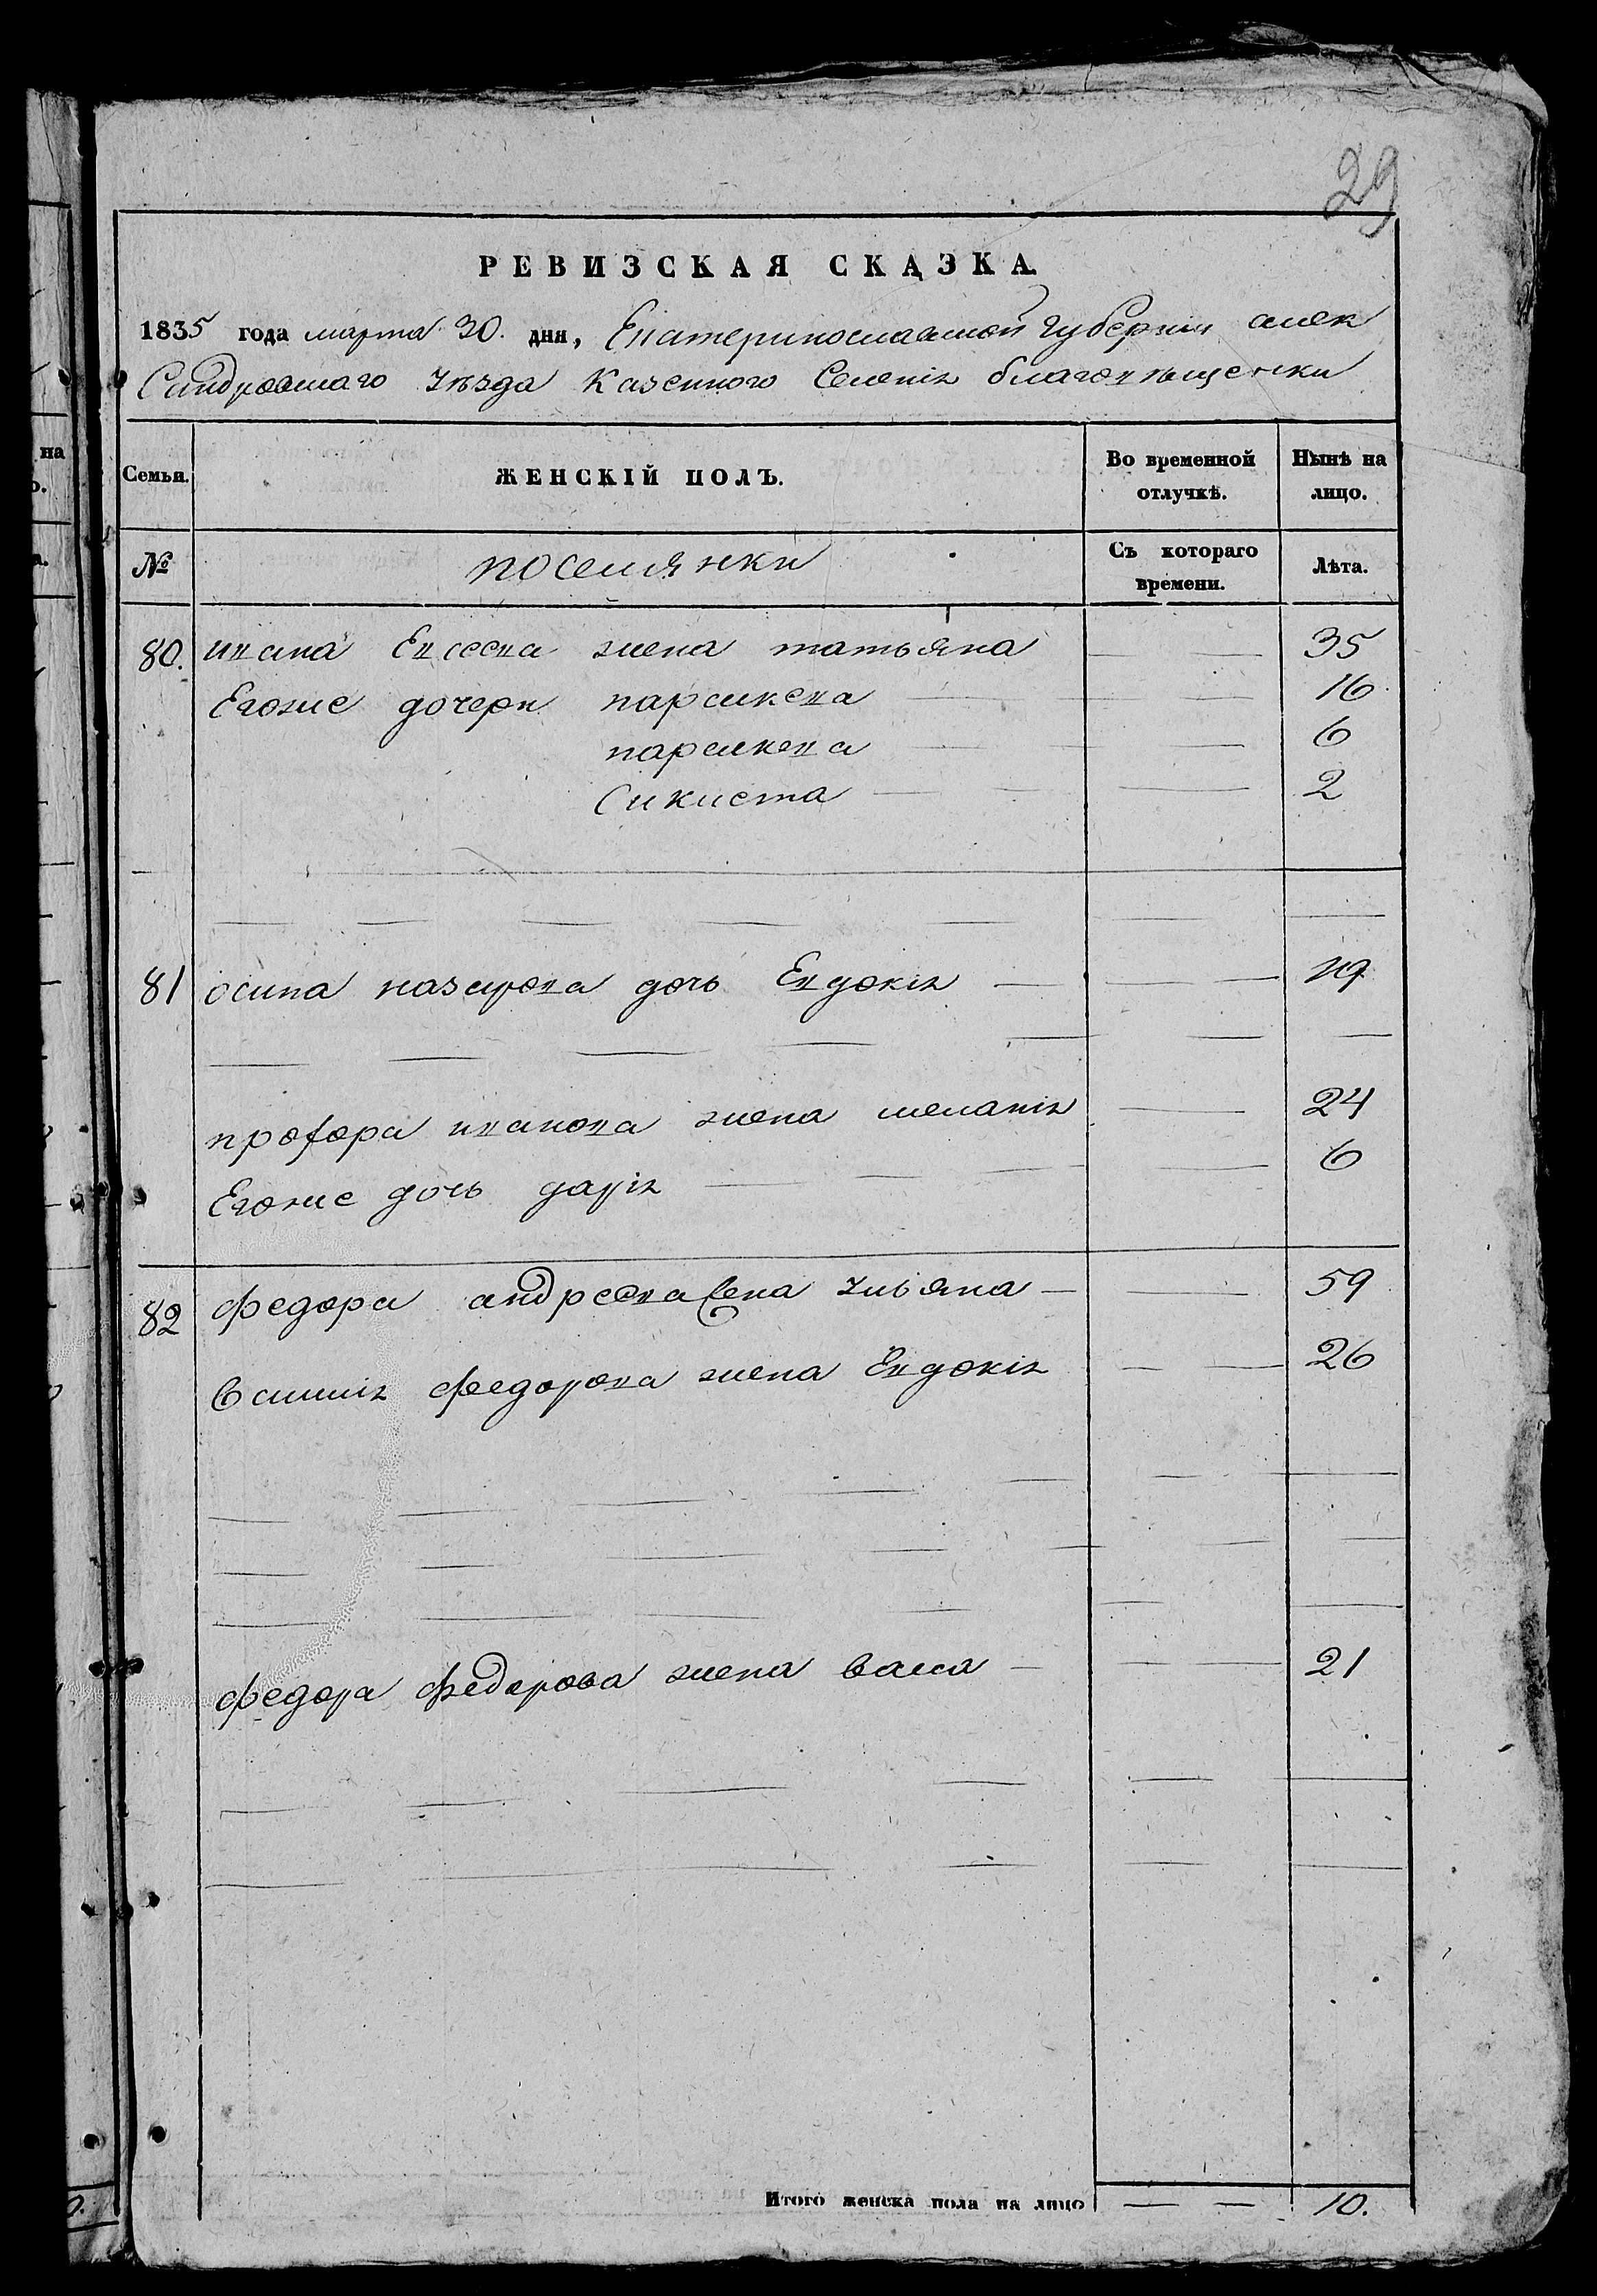 29
РЕВИЗСКАЯ СКАЗКА.
1835 года марта 30. дня, Екатеринославской губернии алек
Сандровскаго уѣзда Казенного Селенія благовѣщенки
Семьи. ЖЕНСКІЙ ПОЛЪ. Во временной отлучкѣ. Нынѣ на лицо.
№ поселянки Съ котораго времени. Лѣта.
80. ивана Евсеева жена татьяна 35
Егоже дочери парасковва 16
парасковва 6
2
81 осипа назарова дочь Евдокія 19
профора иванова жена меланія 24
Егоже дочь дарія 6
82 федора андреева жена ульяна 59
Василія федорова жена Евдокія 26
федора федорова жена васа 21
Итого женска пола на лицо 10.
на
о.
а.